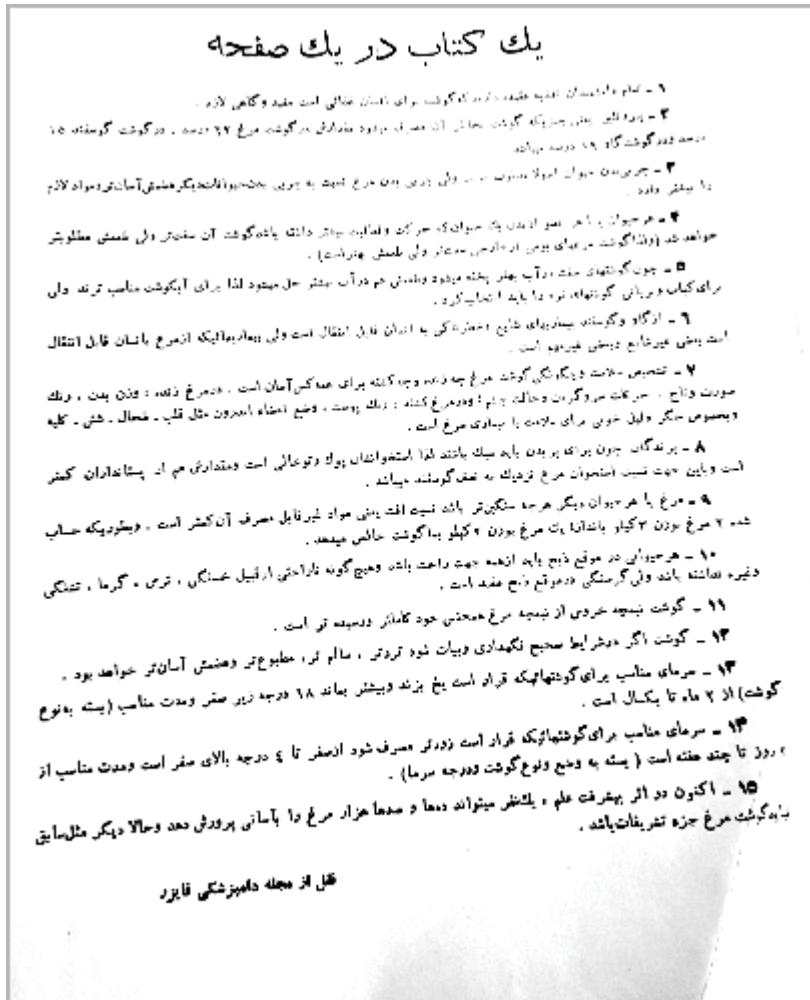 يك كتاب در يك صفحه
۱ - تمام دانشمندان تغذيه عقيده دارند كه گوشت برای انسان غذائی است مفيد و گاهی لازم .
۲ - پروتئين يعنی چيزيكه گوشت بخاطر آن مصرف ميشود مقدارش در گوشت مرغ ۲۲ درصد . در گوشت گوسفند ۱۵
درصد و در گوشت گاو ۱۹ درصد ميباشد
۳ - چربی بدن حيوان اصولا ولی چربی بدن مرغ نسبت به چربی بدن حيوانات ديگر هضمش آسان تر و مواد لازم
را بيشتر دارد .
۴ - هر حيوان يا هر عضو از بدن يك حيوان كه حركت و فعاليت بيشتر داشته باشد گوشت آن سفت تر ولی طعمش مطلوبتر
خواهد شد (ولذا گوشت مرغهای بومی از خارجی سفت تر ولی طعمش بهتر است) .
۵ - چون گوشتهای سفت در آب بهتر پخته ميشود و طعمش هم در آب بيشتر حل ميشود لذا برای آبگوشت مناسب ترند ولی
برای كباب و بريانی گوشتهای نرم را بايد انتخاب كرد .
۶ - از گاو و گوسفند بيماريهای شايع و خطرناكی به انسان قابل انتقال است ولی بيماريهائيكه از مرغ بانسان قابل انتقال
است بعضی غير شايع و بعضی غير مهم است .
۷ - تشخيص سلامت و چگونگی گوشت مرغ چه زنده و چه كشته برای همه كس آسان است . در مرغ زنده : وزن بدن ، رنگ
صورت و تاج ، حركات سر و گردن و حالت چشم ؛ و در مرغ كشته : رنگ پوست ، وضع اعضاء اندرون مثل قلب - طحال - شش - كليه
و بخصوص جگر دليل خوبی برای سلامت يا بيماری مرغ است .
۸ - پرندگان چون برای پريدن بايد سبك باشند لذا استخوانشان پوك و توخالی است و مقدارش هم از پستانداران كمتر
است و باين جهت نسبت استخوان مرغ نزديك به نصف گوسفند ميباشد .
۹ - مرغ يا هر حيوان ديگر هرچه سنگين تر باشد نسبت افت يعنی مواد غير قابل مصرف آن كمتر است . و بطوريكه حساب
شده ۲ مرغ بوزن ۳ كيلو باندازه يك مرغ بوزن ۲ كيلو بما گوشت خالص ميدهد .
۱۰ - هر حيوانی در موقع ذبح بايد از همه جهت راحت باشد و هيچ گونه ناراحتی از قبيل خستگی ، ترس ، گرما ، تشنگی
و غيره نداشته باشد ولی گرسنگی در موقع ذبح مفيد است .
۱۱ - گوشت نيمچه خروس از نيمچه مرغ همجنس خود كاملتر و رسيده تر است .
۱۲ - گوشت اگر در شرايط صحيح نگهداری و بيات شود تردتر ، سالم تر ، مطبوع تر و هضمش آسان تر خواهد بود .
۱۳ - سرمای مناسب برای گوشتهائيكه قرار است يخ بزند و بيشتر بماند ۱۸ درجه زير صفر و مدت مناسب (بسته به نوع
گوشت) از ۲ ماه تا يكسال است .
۱۴ - سرمای مناسب برای گوشتهائيكه قرار است زودتر مصرف شود از صفر تا ٤ درجه بالای صفر است و مدت مناسب از
روز تا چند هفته است ( بسته به وضع و نوع گوشت و درجه سرما) .
۱۵ - اكنون در اثر پيشرفت علم ، يك نفر ميتواند دهها و صدها هزار مرغ را بآسانی پرورش دهد و حالا ديگر مثل سابق
نبايد گوشت مرغ جزء تشريفات باشد .
نقل از مجله دامپزشكی فايزر